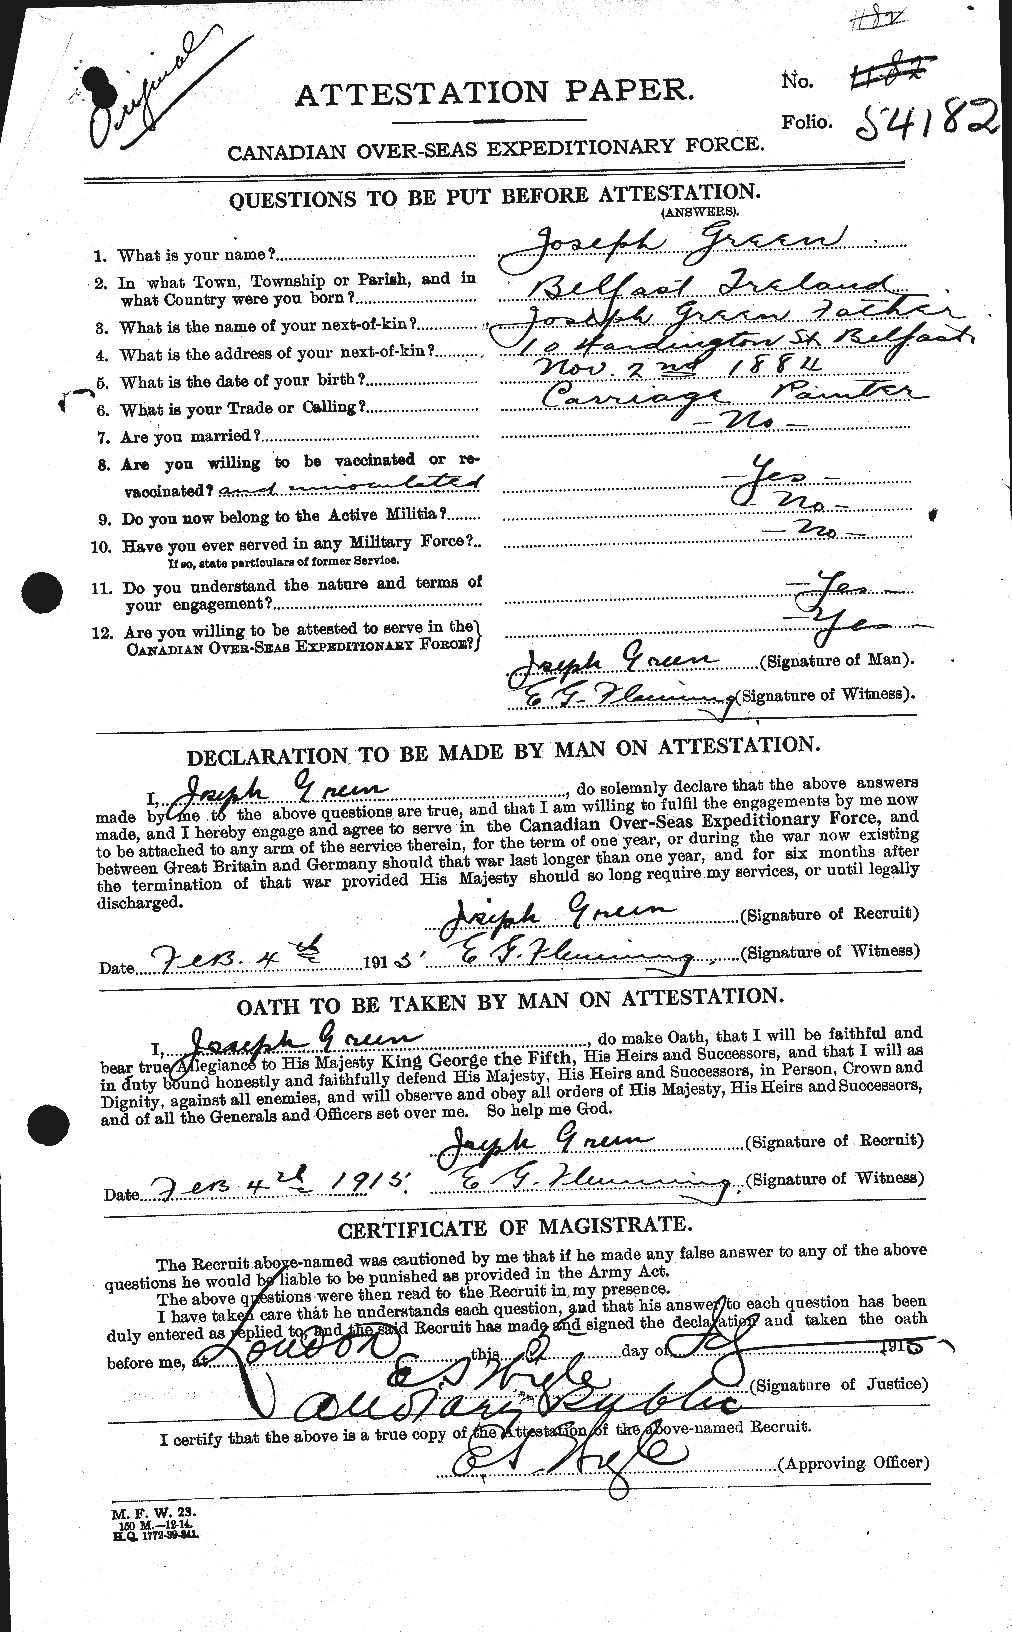 482
Original
ATTESTATION PAPER.
No. 482
Folio. 54182
CANADIAN OVER-SEAS EXPEDITIONARY FORCE.
QUESTIONS TO BE PUT BEFORE ATTESTATION.
(ANSWERS).
1. What is your name? Joseph Green
2. In what Town, Township or Parish, and in
what Country were you born? Belfast Ireland
3. What is the name of your next-of-kin? Joseph Green Father
4. What is the address of your next-of-kin? 10 Hardington St Belfast
5. What is the date of your birth? Nov. 2nd 1884
6. What is your Trade or Calling? Carriage Painter
7. Are you married? - No -
8. Are you willing to be vaccinated or re-
vaccinated? and innoculated - Yes -
9. Do you now belong to the Active Militia? - No -
10. Have you ever served in any Military Force? - No -
If so, state particulars of former Service.
11. Do you understand the nature and terms of
your engagement? - Yes -
12. Are you willing to be attested to serve in the
CANADIAN OVER-SEAS EXPEDITIONARY FORCE? - Yes -
Joseph Green (Signature of Man).
E G. Flemming (Signature of Witness).
DECLARATION TO BE MADE BY MAN ON ATTESTATION.
I, Joseph Green, do solemnly declare that the above answers
made by me to the above questions are true, and that I am willing to fulfil the engagements by me now
made, and I hereby engage and agree to serve in the Canadian Over-Seas Expeditionary Force, and
to be attached to any arm of the service therein, for the term of one year, or during the war now existing
between Great Britain and Germany should that war last longer than one year, and for six months after
the termination of that war provided His Majesty should so long require my services, or until legally
discharged.
Joseph Green (Signature of Recruit)
Date Feb. 4th 1915 E G. Flemming (Signature of Witness)
OATH TO BE TAKEN BY MAN ON ATTESTATION.
I, Joseph Green, do make Oath, that I will be faithful and
bear true Allegiance to His Majesty King George the Fifth, His Heirs and Successors, and that I will as
in duty bound honestly and faithfully defend His Majesty, His Heirs and Successors, in Person, Crown and
Dignity, against all enemies, and will observe and obey all orders of His Majesty, His Heirs and Successors,
and of all the Generals and Officers set over me. So help me God.
Joseph Green (Signature of Recruit)
Date Feb 4th 1915. E G. Flemming (Signature of Witness)
CERTIFICATE OF MAGISTRATE.
The Recruit above-named was cautioned by me that if he made any false answer to any of the above
questions he would be liable to be punished as provided in the Army Act.
The above questions were then read to the Recruit in my presence.
I have taken care that he understands each question, and that his answer to each question has been
duly entered as replied to, and the said Recruit has made and signed the declaration and taken the oath
before me, at London this day of 1915
E S Wigle (Signature of Justice)
A Notary Public
I certify that the above is a true copy of the Attestation of the above-named Recruit.
E S. Wigle (Approving Officer)
M. F. W. 23.
150 M.—12-14.
H.Q. 1772-39-841.